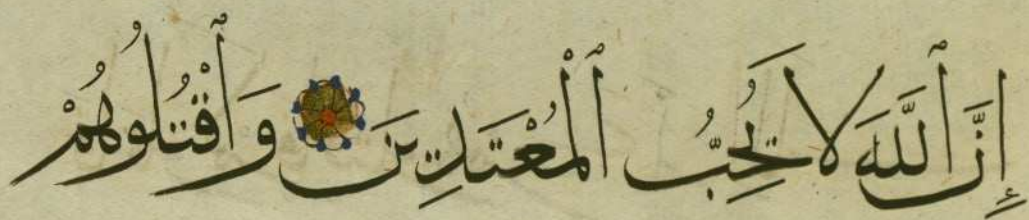 إِنَّ ٱللَّهَ لَا يُحِبُّ ٱلْمُعْتَدِينَ وَٱقْتُلُوهُمْ